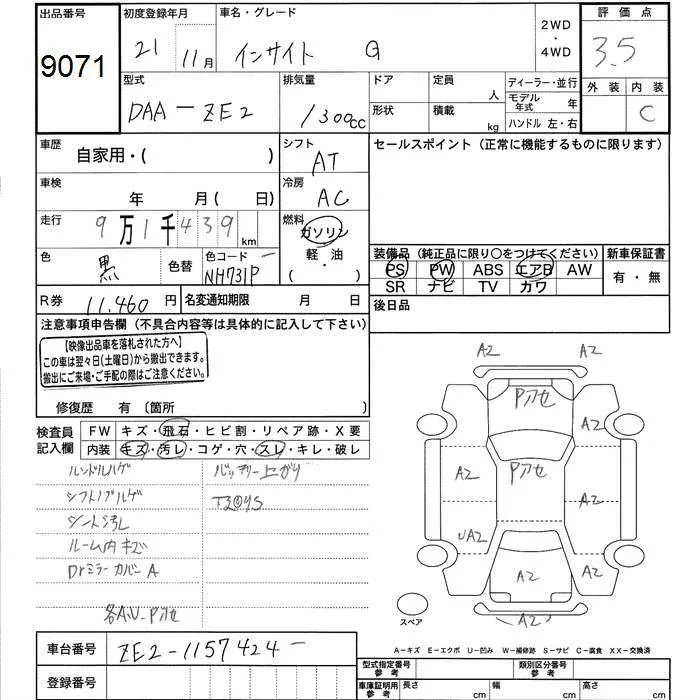 出品番号 初度登録年月 車名・グレード 2WD・4WD 評価点
9071 21 11月 インサイト G 3.5
型式 排気量 ドア 定員 人 ディーラー・並行 外装 内装
DAA-ZE2 1300cc 形状 積載 kg モデル年式 年 C
ハンドル 左・右
車歴 自家用・( ) シフト AT セールスポイント(正常に機能するものに限ります)
車検 年 月(日) 冷房 AC
走行 9万1千439km 燃料 ガソリン
軽・油
・( )
色 黒 色替 色コード NH731P
装備品(純正品に限り○をつけてください) 新車保証書
PS PW ABS エアB AW 有・無
SR ナビ TV カワ
R券 11,460円 名変通知期限 月 日 後日品
注意事項申告欄(不具合内容等は具体的に記入して下さい)
【映像出品車を落札された方へ】
この車は翌々日(土曜日)から搬出できます。
搬出にご来場・ご手配の際はご注意ください。
修復歴 有〔箇所 〕
検査員記入欄 FW キズ・飛石・ヒビ割・リペア跡・X要
内装 キズ・汚レ・コゲ・穴・スレ・キレ・破レ
ハンドルハゲ バッテリー上がり
シフトノブハゲ
シート汚レ
ルーム内キズ
Drミラーカバー A
各A.U.Pアセ
A2 A2
Pアセ
Pアセ
A2 A2
UA2 A2 A2
A2
スペア
A-キズ E-エクボ U-凹み W-補修跡 S-サビ C-腐食 XX-交換済
車台番号 ZE2-1157424
登録番号
型式指定番号 参考 類別区分番号 参考
車庫証明用 参考 長さ cm 幅 cm 高さ cm